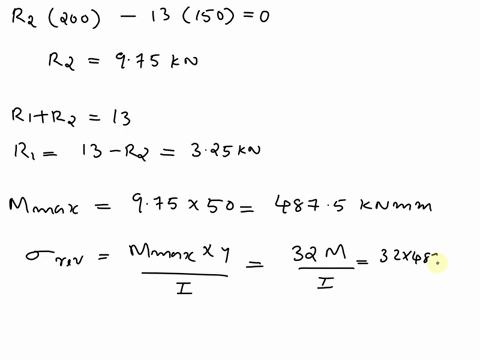 R2 (200) - 13 (150) = 0
R2 = 9.75 kN
R1 + R2 = 13
R1 = 13 - R2 = 3.25 kN
Mmax = 9.75 x 50 = 487.5 kNmm
σrev = Mmax x y / I = 32 M / I = 32x48